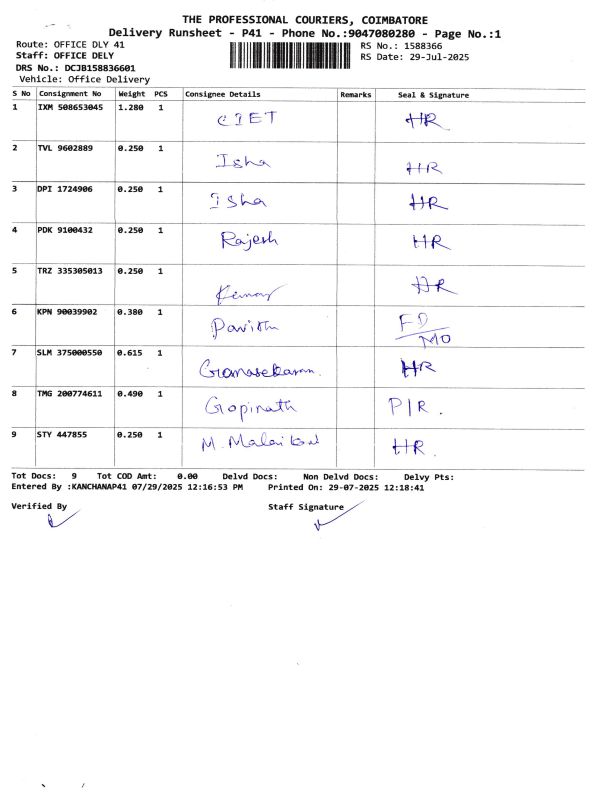 THE PROFESSIONAL COURIERS, COIMBATORE
Delivery Runsheet - P41 - Phone No.:9047080280 - Page No.:1
Route: OFFICE DLY 41 RS No.: 1588366
Staff: OFFICE DELY RS Date: 29-Jul-2025
DRS No.: DCJB158836601
Vehicle: Office Delivery
S No Consignment No Weight PCS Consignee Details Remarks Seal & Signature
1 IXM 508653045 1.280 1 CIET HR
2 TVL 9602889 0.250 1 Isha HR
3 DPI 1724906 0.250 1 Isha HR
4 PDK 9100432 0.250 1 Rajesh HR
5 TRZ 335305013 0.250 1 HR
6 KPN 90039902 0.380 1 Pavith FD
MO
7 SLM 375000550 0.615 1 Gunasekaran. HR
8 TMG 200774611 0.490 1 Gopinath P/R.
9 STY 447855 0.250 1 M. HR.
Tot Docs: 9 Tot COD Amt: 0.00 Delvd Docs: Non Delvd Docs: Delvy Pts:
Entered By :KANCHANAP41 07/29/2025 12:16:53 PM Printed On: 29-07-2025 12:18:41
Verified By Staff Signature